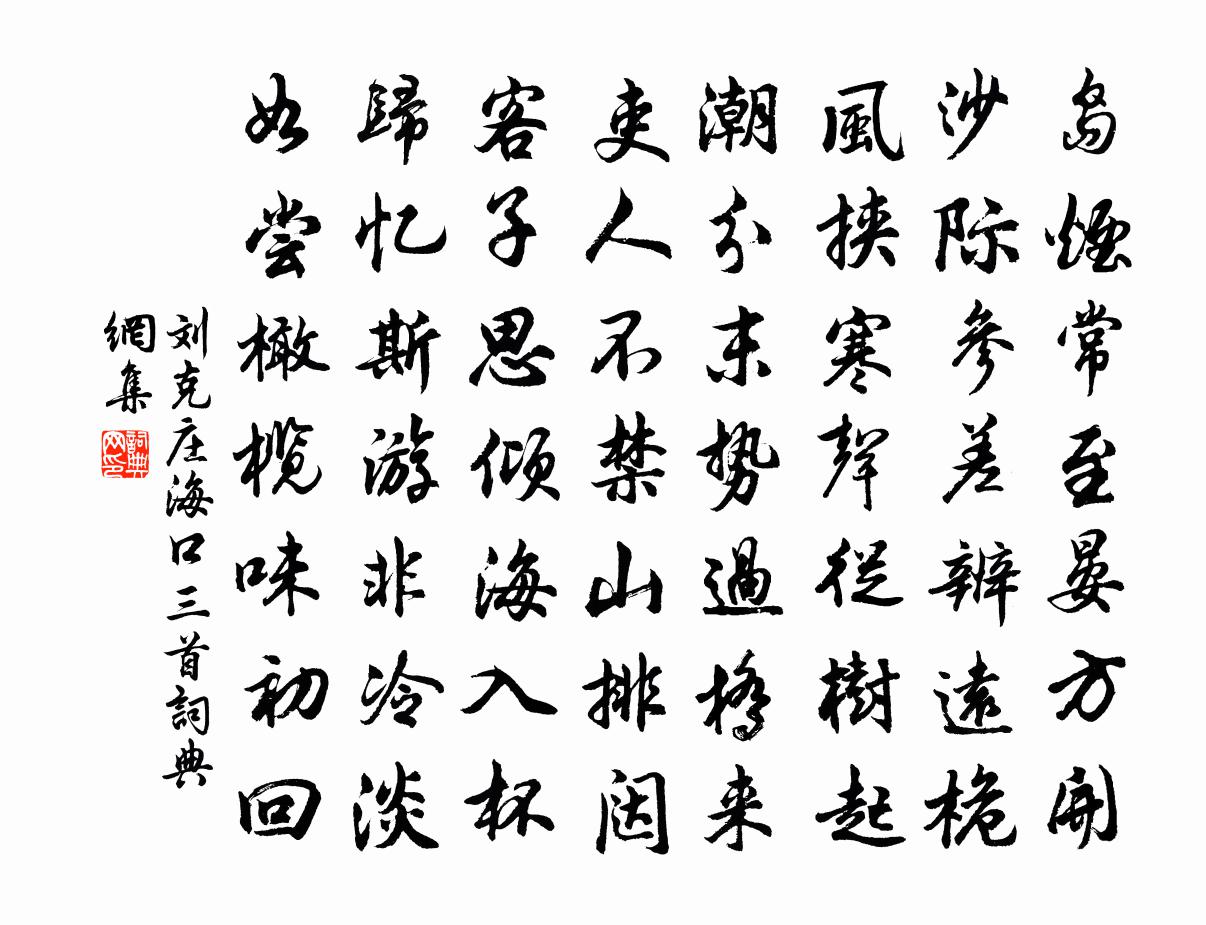 岛煙常至晏方開
沙际參差辨遠桅
風挾寒聲從樹起
潮分末势過橋来
吏人不禁山排闼
客子思倾海入杯
歸忆斯游非冷淡
如尝橄榄味初回
刘克庄海口三首詞典
網集
詞典网印